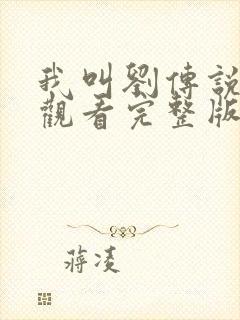 我叫劉傳說
觀看完整版
蔣凌